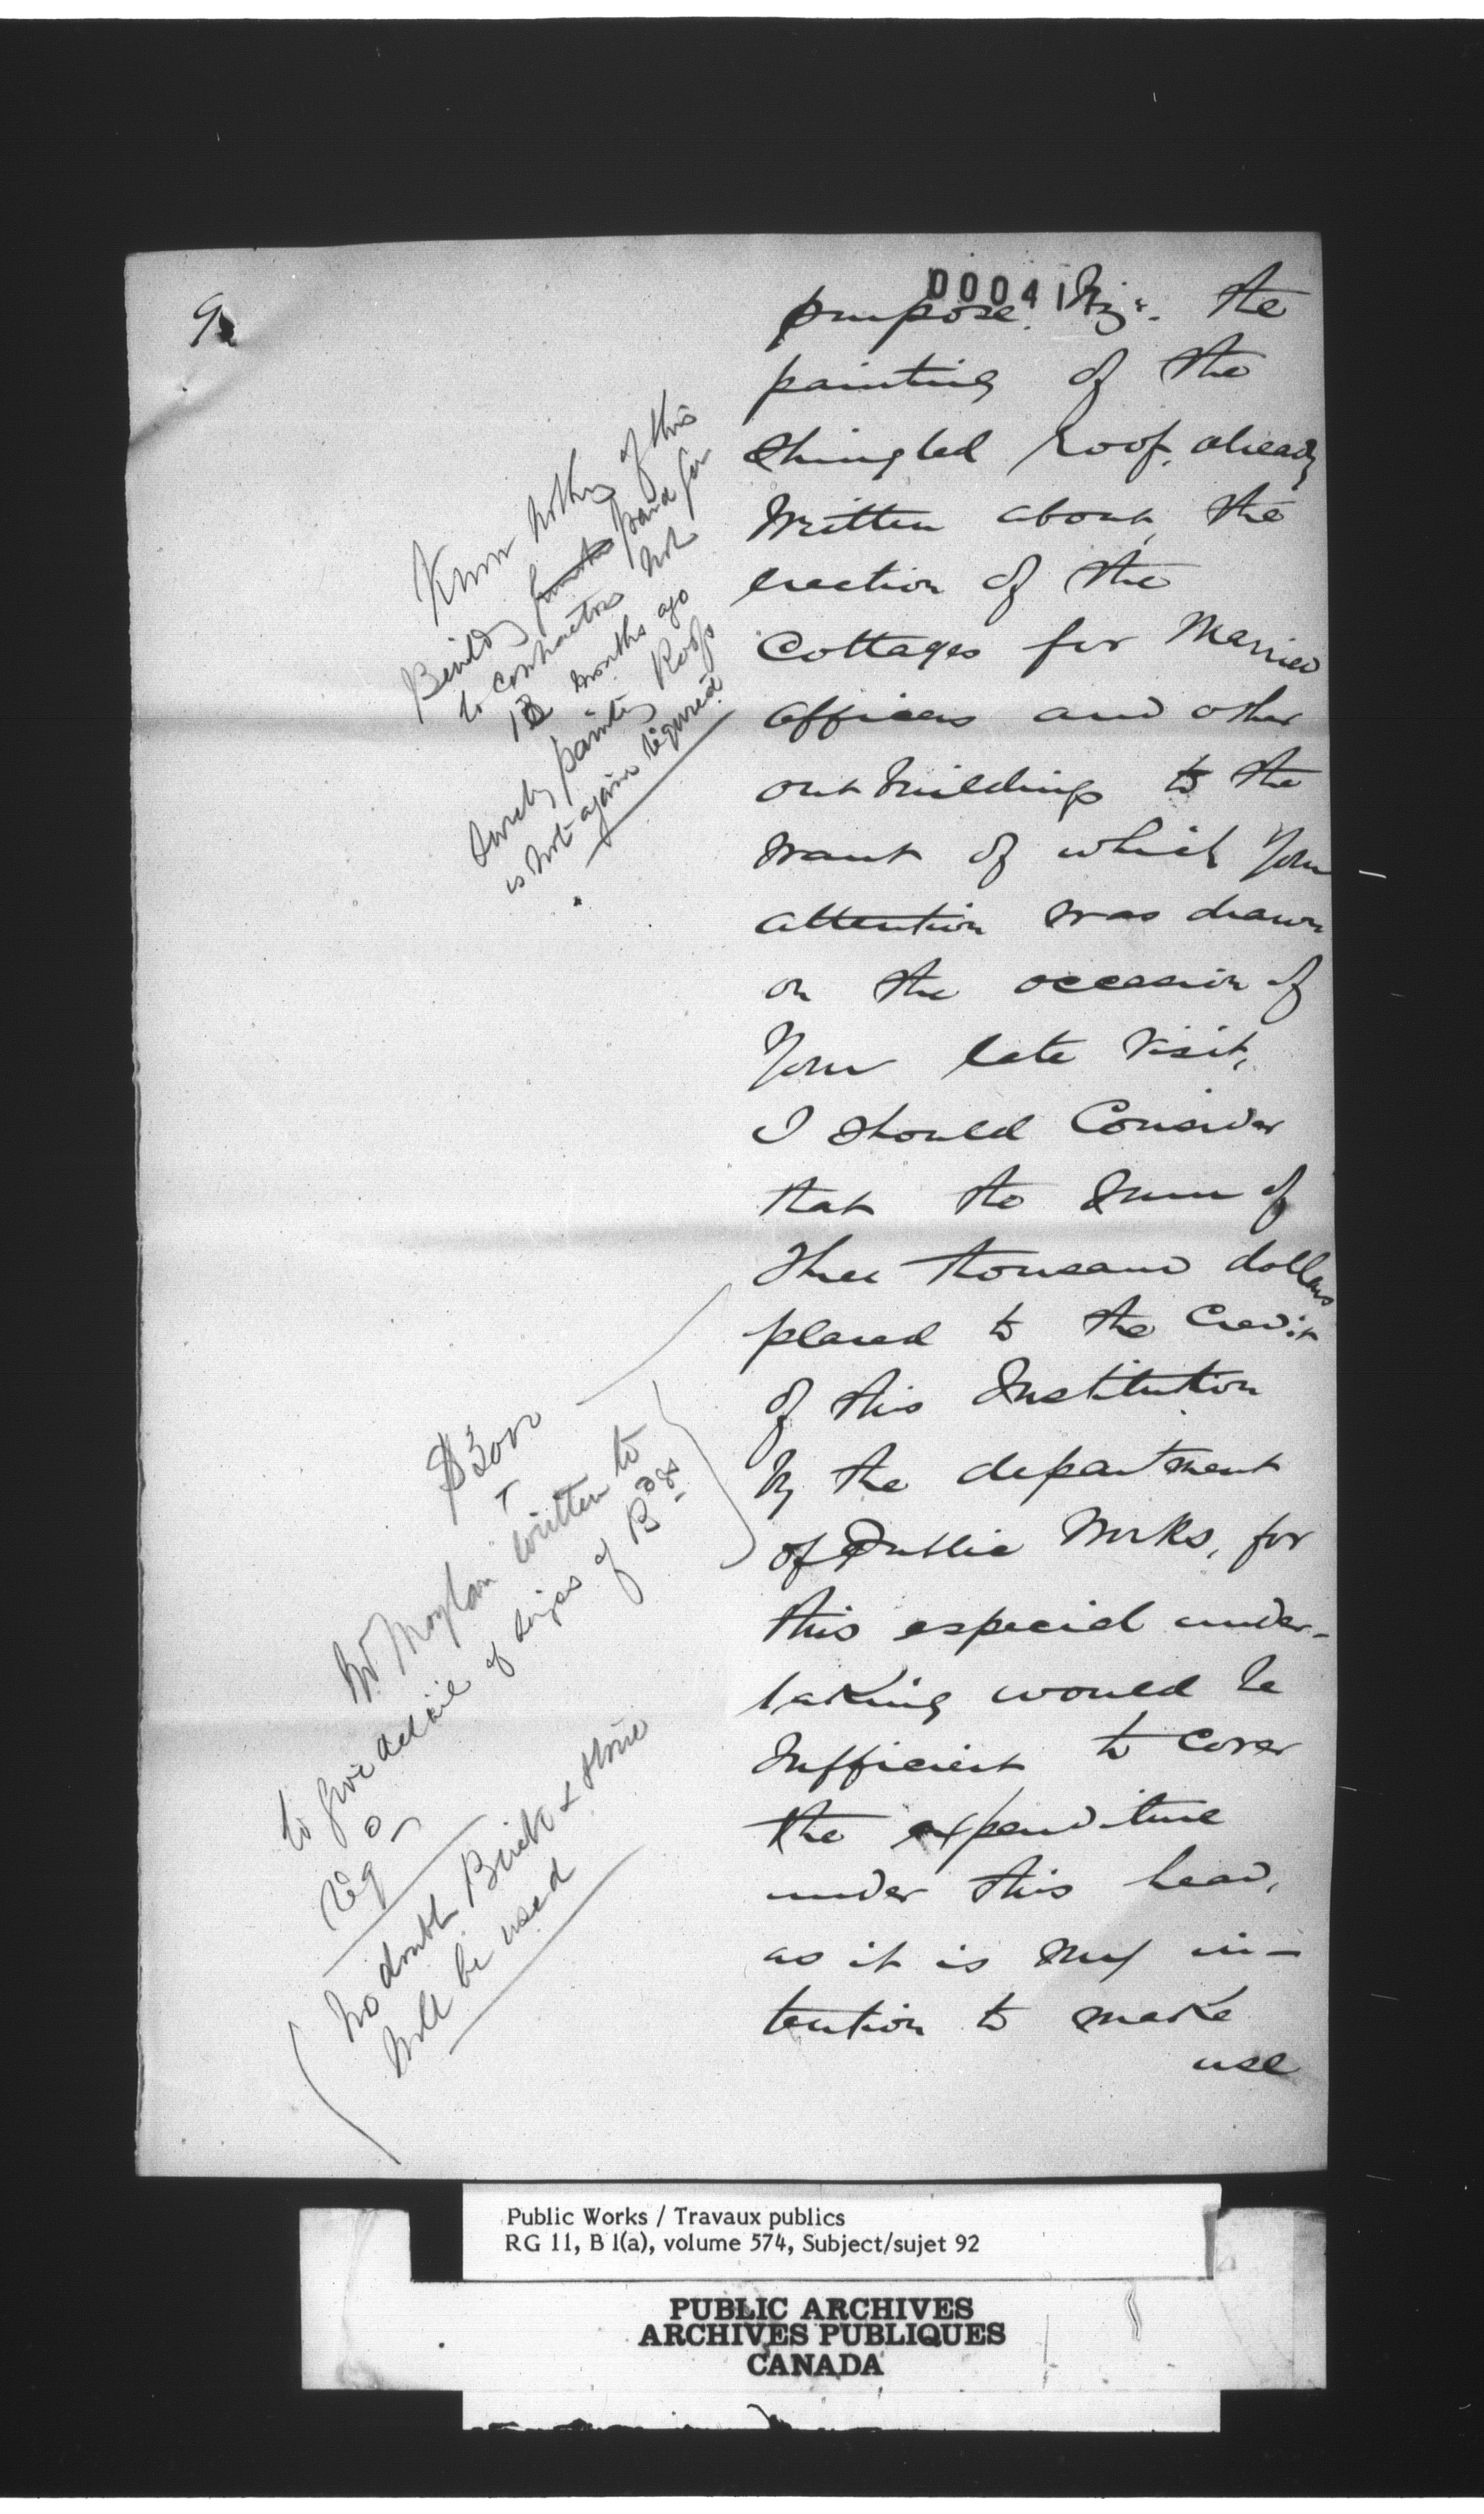 9
00041
purpose. Viz:. the
painting of the
Shingled Roof, already
Written about, the
erection of the
Cottages for Married
Officers and other
out buildings to the
want of which Your
attention was drawn
on the occasion of
Your late Visit,
I should Consider
that the Sum of
three thousand dollars
placed to the Credit
of this Institution
by the department
of Public Works, for
this especial under-
taking would be
Sufficient to cover
the expenditure
under this head,
as it is my in-
tention to make
use
Know nothing of this
Building paid for
to contractors not
18 months ago
Surely painting Roof
is not again required
$3000
Mr Moylan written to
to give detail of sizes of Bdgs
Req
No doubt Brick & Stone
will be used
Public Works / Travaux publics
RG 11, B 1(a), volume 574, Subject/sujet 92
PUBLIC ARCHIVES
ARCHIVES PUBLIQUES
CANADA